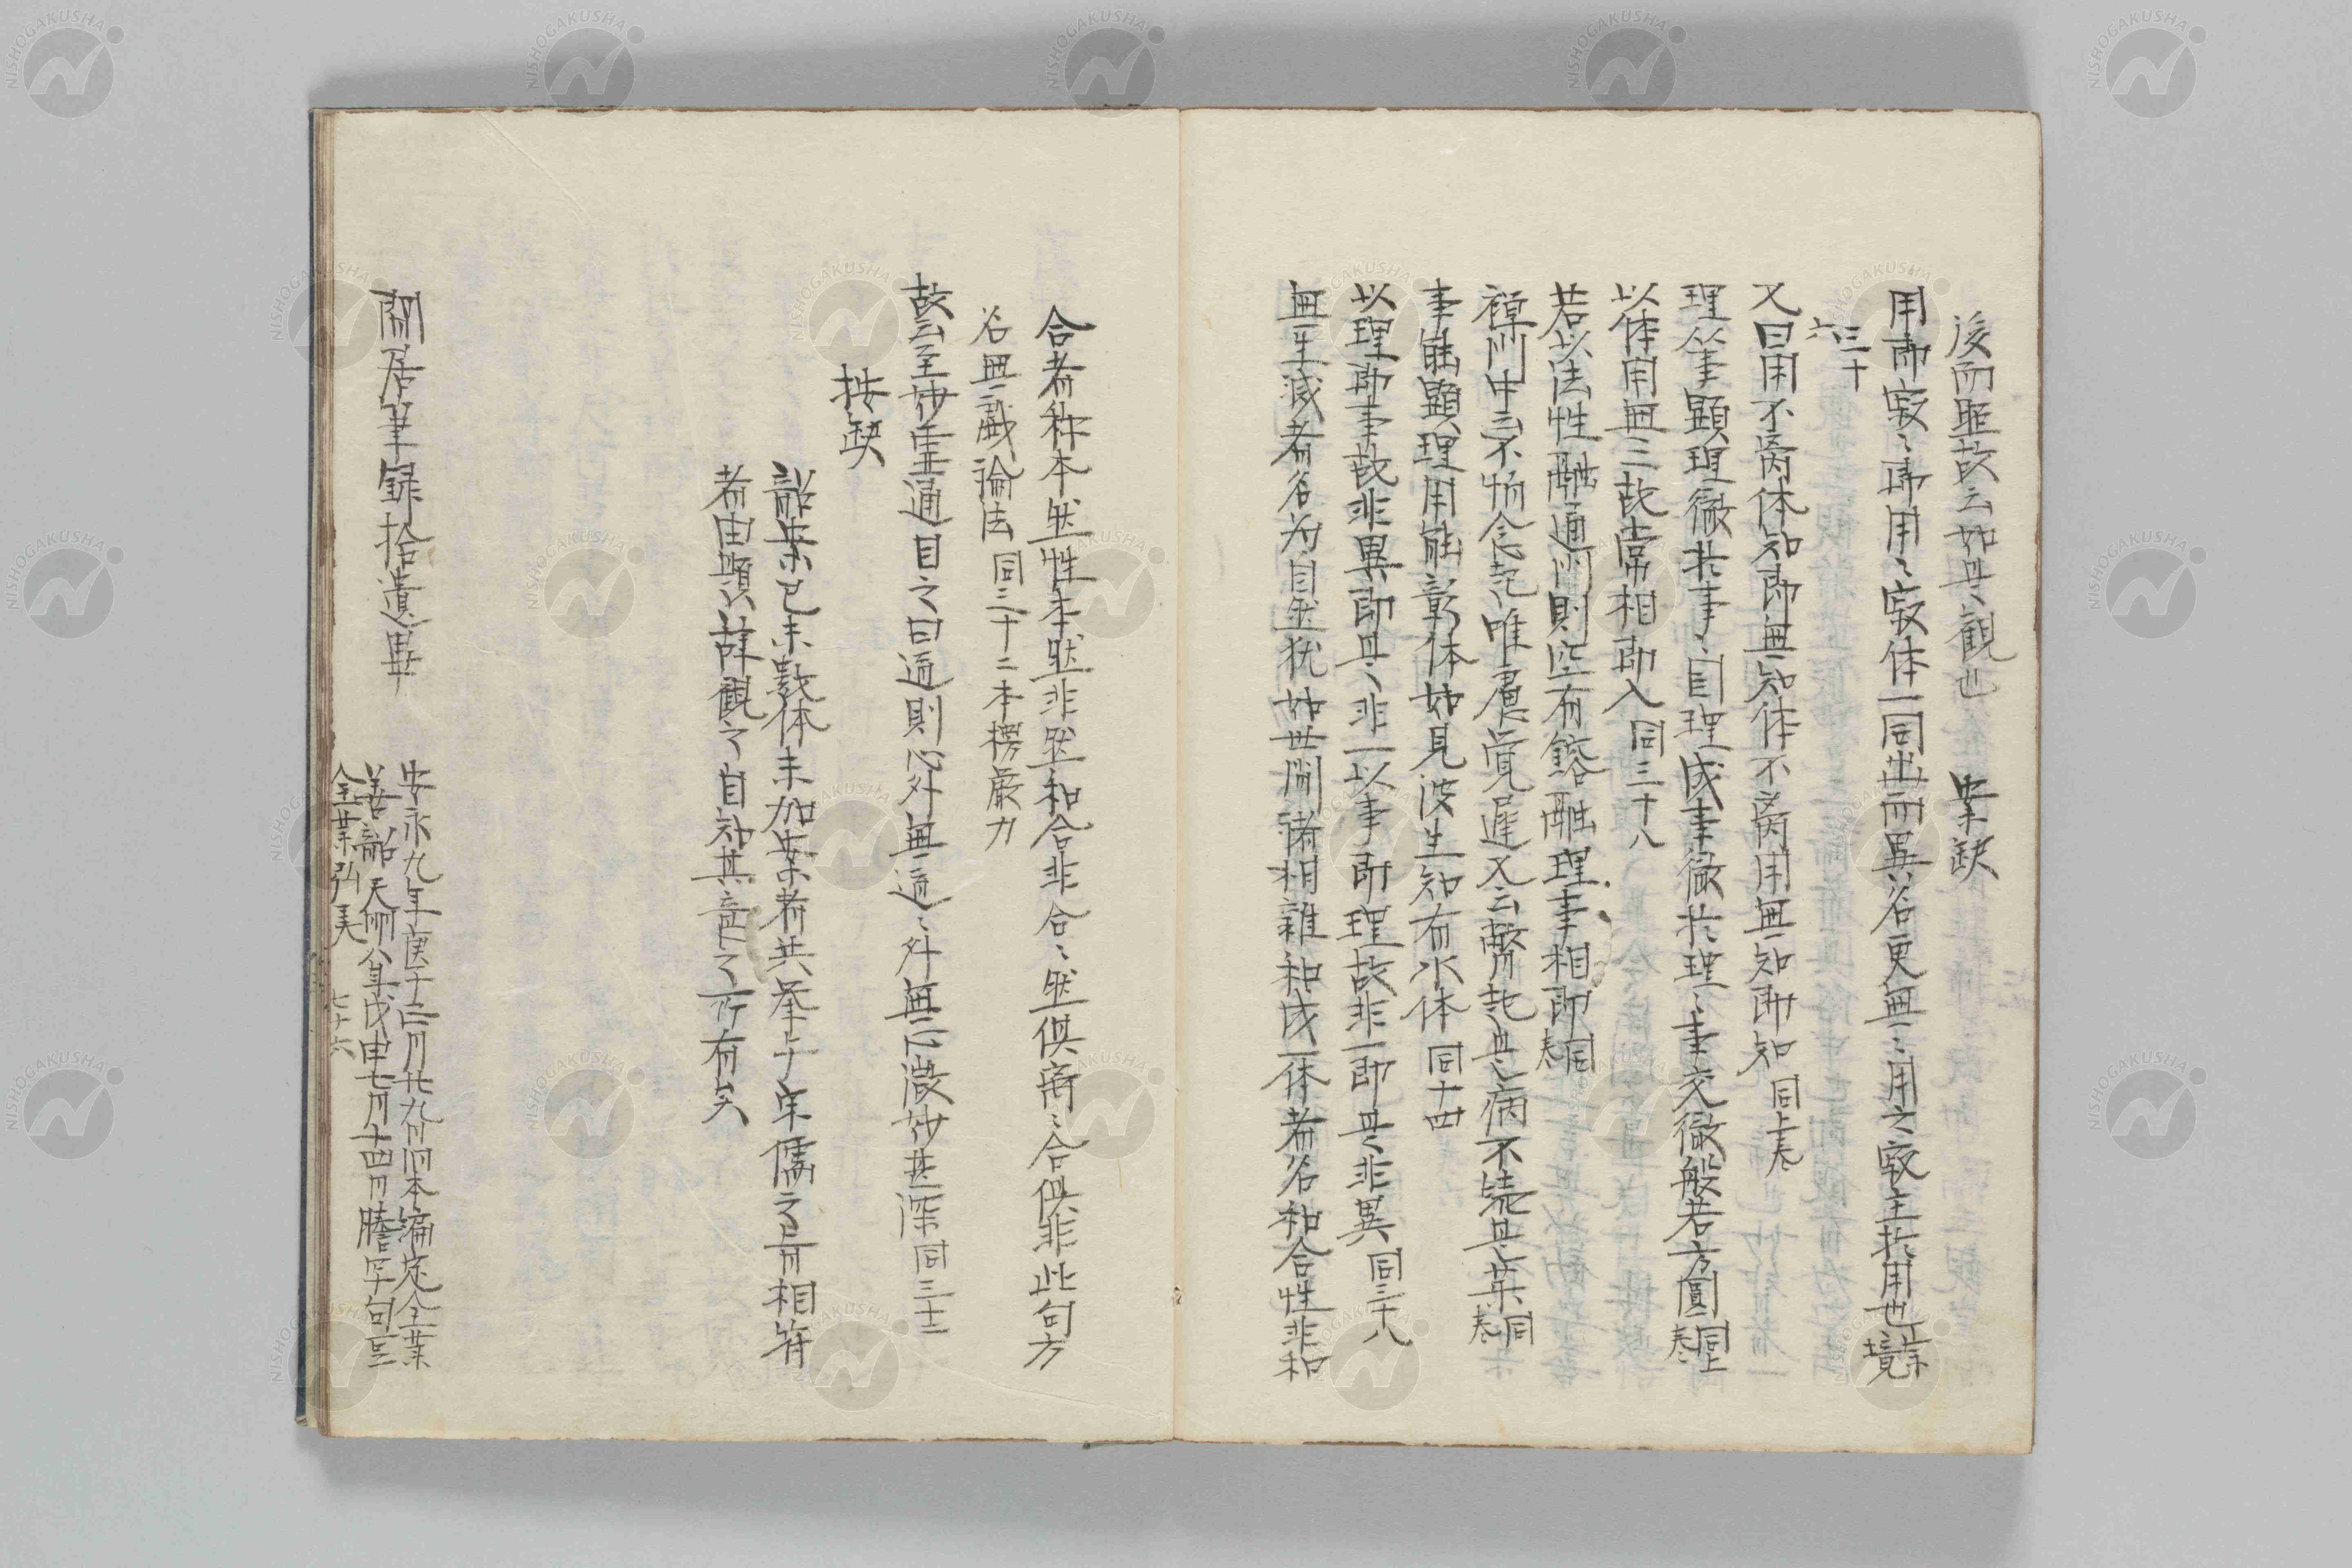 後而照故云如是観也 案缺
用即寂〻即用〻寂体一同出而異名更無〻用之寂主於用也宗鏡
三十六
又曰用不离体知即無知体不离用無知即知 同上卷
理從事顯理徹於事〻自理成事徹於理〻事交徹般若方圓同上卷
以体用無二故常相即入 同三十八
若以法性融通門則空有鎔融理事相即同卷
禪門中云不怕念起唯慮覚遲又云瞥起是病不続是薬同卷
事能顯理用能彰体如見波生知有水体 同十四
以理即事故非異即是〻非一以事即理故非一即是〻非異 同三十八
無生滅者名为自然犹如世間諸相雜和成一体者名和合性非和
合者称本然性本然非然和合非合〻然俱离〻合俱非此句方
名無戯論法 同三十二本楞厳力
故云至妙虚通目之曰道則心外無道〻外無心微妙甚深同三十二
按缺
韶案已未数体未加案者共挙上下朱儒之言相符
者由顕以薛観之自知其意之所有矣
閒居筆録拾遺畢
安永九年庚子十二月廿九日旧本編定全業
善韶 天明八年戊申七月十四日謄写句豆
全業弘美 七十六
NISHOGAKUSHA